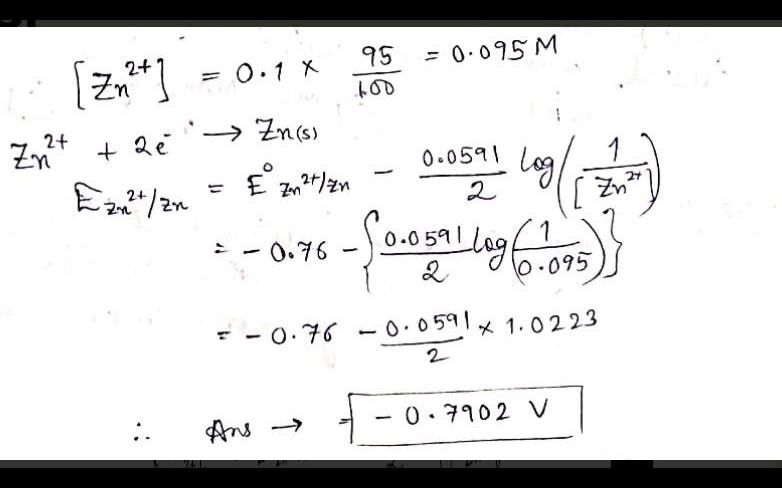 [Zn²⁺] = 0.1 × 95/100 = 0.095 M
Zn²⁺ + 2e⁻ → Zn(s)
E Zn²⁺/Zn = E° Zn²⁺/Zn - 0.0591/2 log(1/[Zn²⁺])
= - 0.76 - {0.0591/2 log(1/0.095)}
= - 0.76 - 0.0591/2 × 1.0223
∴ Ans → - 0.7902 V